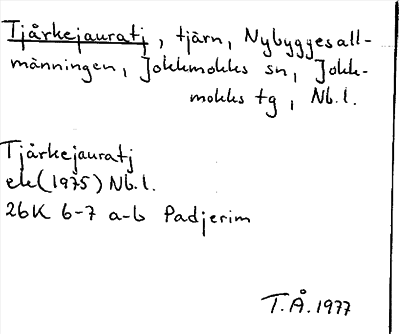 Tjårkejauratj, tjärn, Nybyggesall-
männingen, Jokkmokks sn, Jokk-
mokks tg, Nb.l.
Tjårkejauratj
ek (1975) Nb.l.
26K 6-7 a-b Padjerim
T.Å. 1977